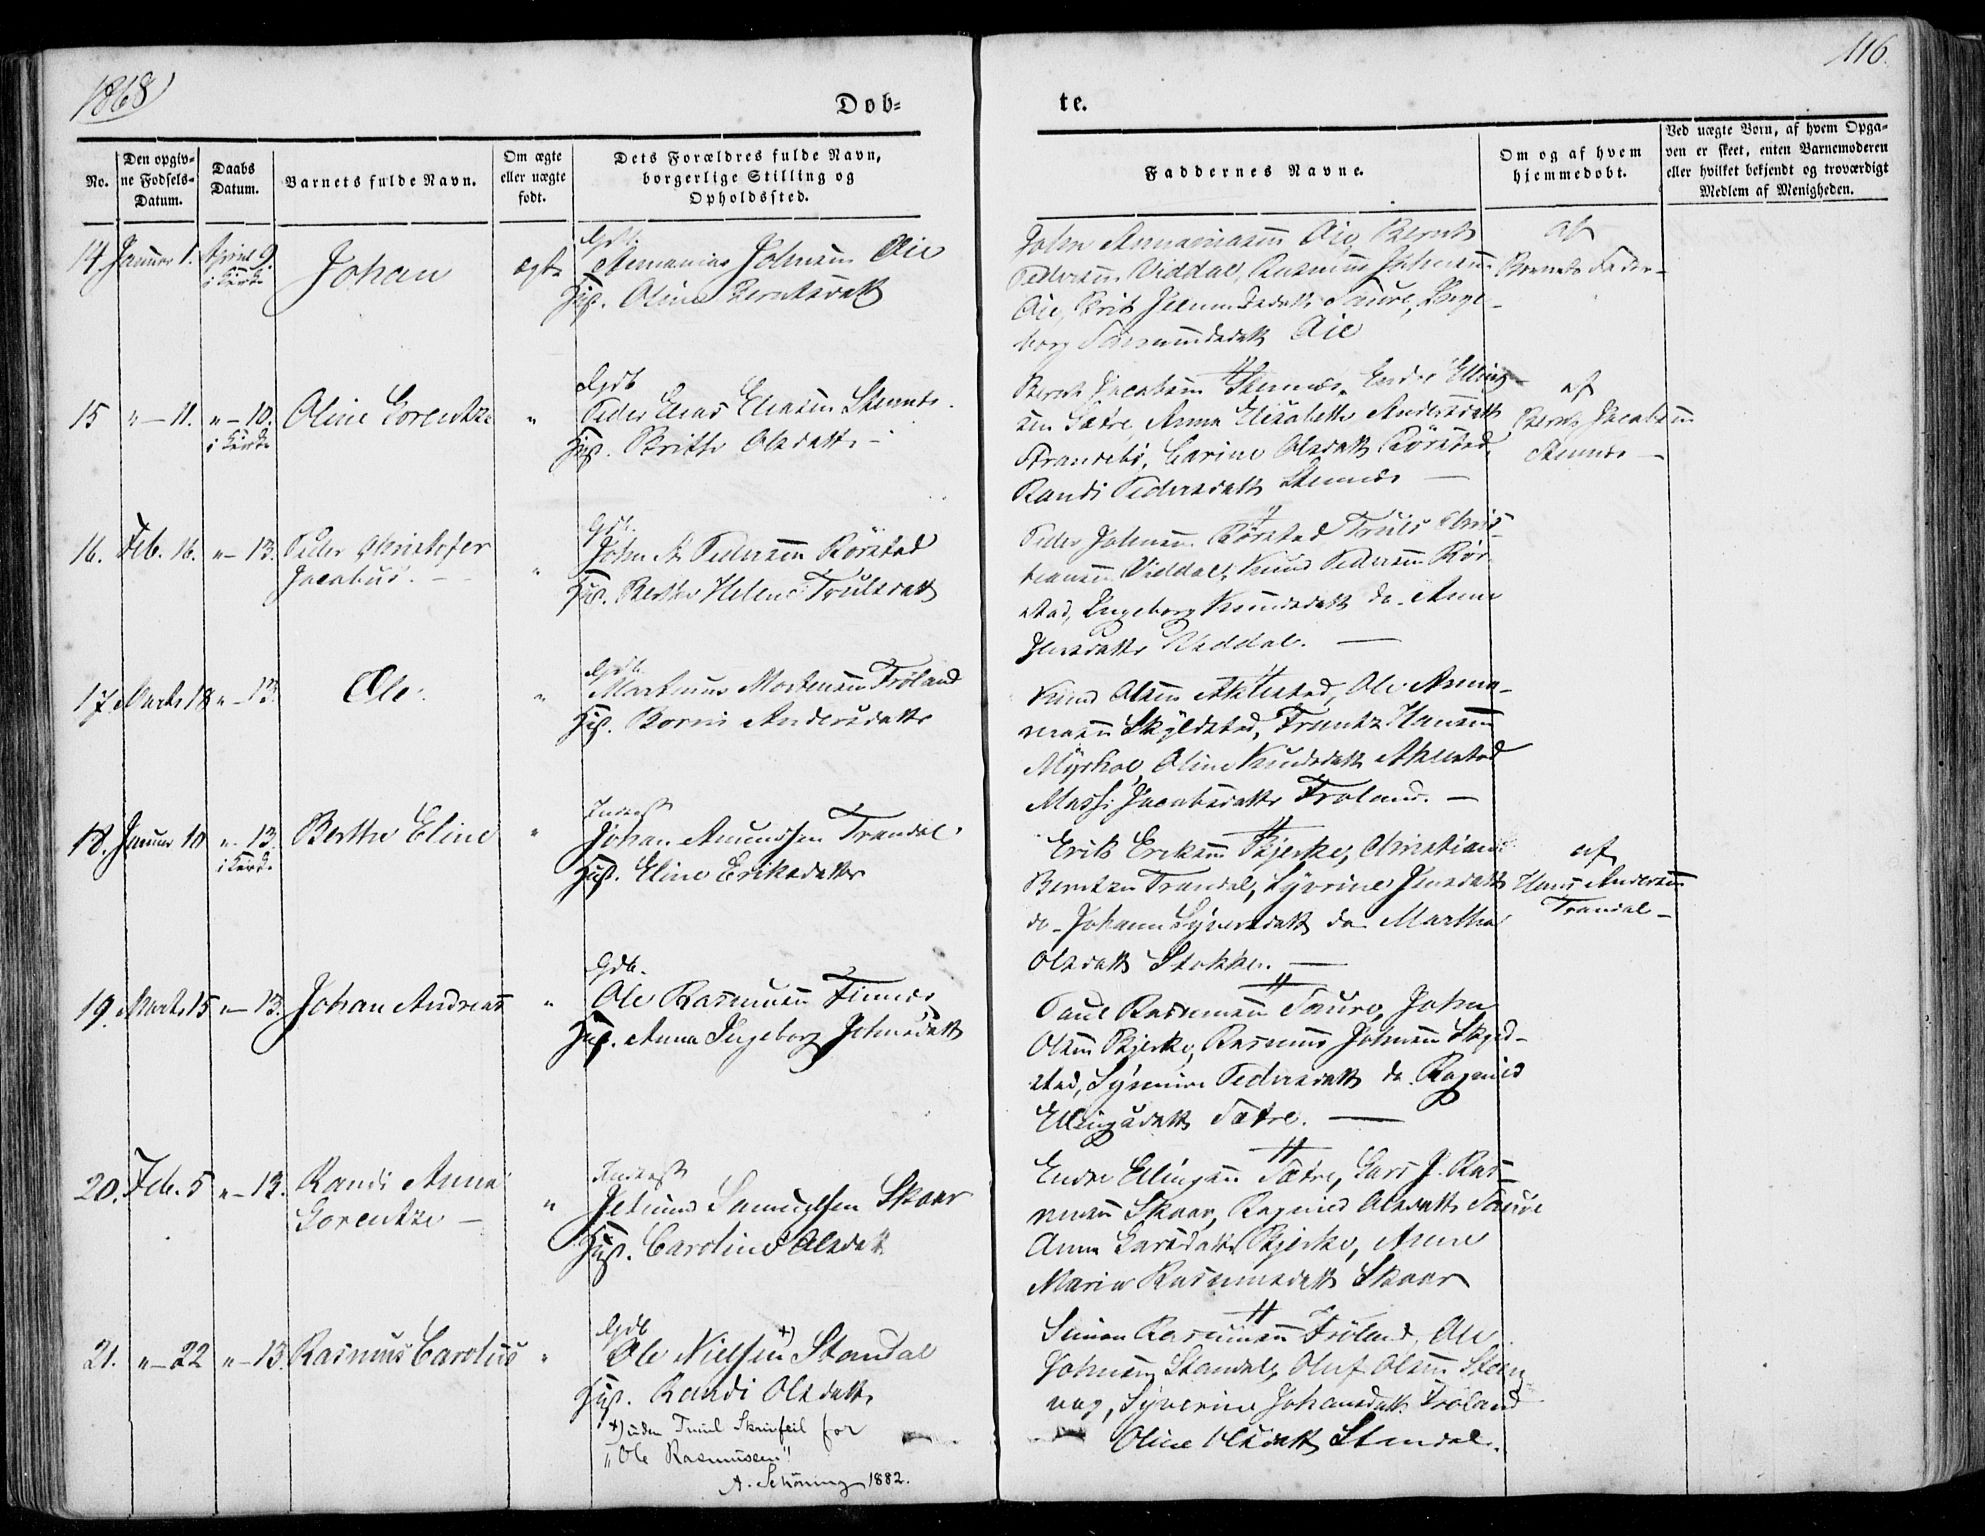 1868
116.
Døb=
te.
No.
Den opgiv-
ne Fødsels-
Datum.
Daabs
Datum.
Barnets fulde Navn.
Om ægte
eller uægte
født.
Dets Forældres fulde Navn,
borgerlige Stilling og
Opholdssted.
Faddernes Navne.
Om og af hvem
hjemmedøbt.
Ved uægte Børn, af hvem Opga-
ven er skeet, enten Barnemoderen
eller hvilket bekjendt og troværdigt
Medlem af Menigheden.
14. Januar 1. April 9. Johan ægte Gdb.
i Kirke
Ananias Johnsen Aie
Hus. Oline Berntsdatt
John Ananiasen Aie, Bernt
Pedersen Viddal, Rasmus Johnsen
Aie, Brit Jetmundsdatt Saure, Inge-
borg Aie
af
Barnets Fader
15 " - 11. " - 10. Oline Lorentze " Gdb
i Kirke
Peder Elias Eliasen Stennes.
Hus. Brithe Olsdatt -
Bernt Jacobsen Stennes, Endre Elling-
sen Sætre, Anna Elisabeth Andersdatt
Strandebø, Carine Olsdatt Rørstad,
Randi Pedersdatt Stennes -
af
Bernt Jacobsen
Stennes -
16. Feb. 16. " - 13. Peder Christofer " Gdb.
Jacobus. -
John A. Pedersen Rørstad
Hus. Berthe Helene Trulsdatt
Peder Johnsen Rørstad Truls Chris-
tiansen Viddal, Knud Pedersen Rør-
stad, Ingeborg Knudsdatt do. Anne
Jensdatt Viddal. -
17. Marts 18 " - 13. Ole. " Gdb.
Martinus Mortensen Frøland
Hus. Andersdatt
Knud Olsen Aklestad, Ole Asma-
Skyldstad, Frantz Hansen
Myrhol, Oline Knudsdatt Aklestad
Massi Jacobsdatt Frøland. -
18. Januar 10 " - 13. Berthe Eline " Inderst
i Kirke
Johan Amundsen Trandal.
Hus. Eline Eriksdatt
Erik Eriksen Bjerke, Christian
Berntsen Trandal, Syverine Jensdatt
do - Johanne Syversdatt do Martha
Olsdatt Stokke. -
af
Hans Andersen
Trandal -
19. Marts 15 " - 13. Johan Andreas " Gdb.
Ole Rasmussen Finnes
Hus. Anna Ingeborg Johnsdatt
Paul Rasmussen Saure, John
Olsen Bjerke, Rasmus Johnsen Skyld-
stad, Pedersdatt do Ragnild
Ellingsdatt Sætre. -
20. Feb. 5 " - 13. Randi Anna " Inderst
Lorentze -
Jetmund Samuelsen Skaar
Hus. Caroline Olsdatt
Endre Ellingsen Sætre, Lars J. Ras-
mussen Skaar, Ragnild Olsdatt Saure
Anna Larsdatt Bjerke, Anne
Maria Rasmusdatt Skaar
21. " - 22 " - 13. Rasmus Carolius " Gdb
Ole Nielsen +) Standal
Hus. Randi Olsdatt.
+) uden Tvivl Skrivfeil for
"Ole Rasmussen"
A. Schöning 1882.
Simon Rasmussen Frøland, Ole
Johnsen Standal, Oluf Olsen Steen-
vaag, Syverine Johansdatt Frøland
Oline Olsdatt Standal.